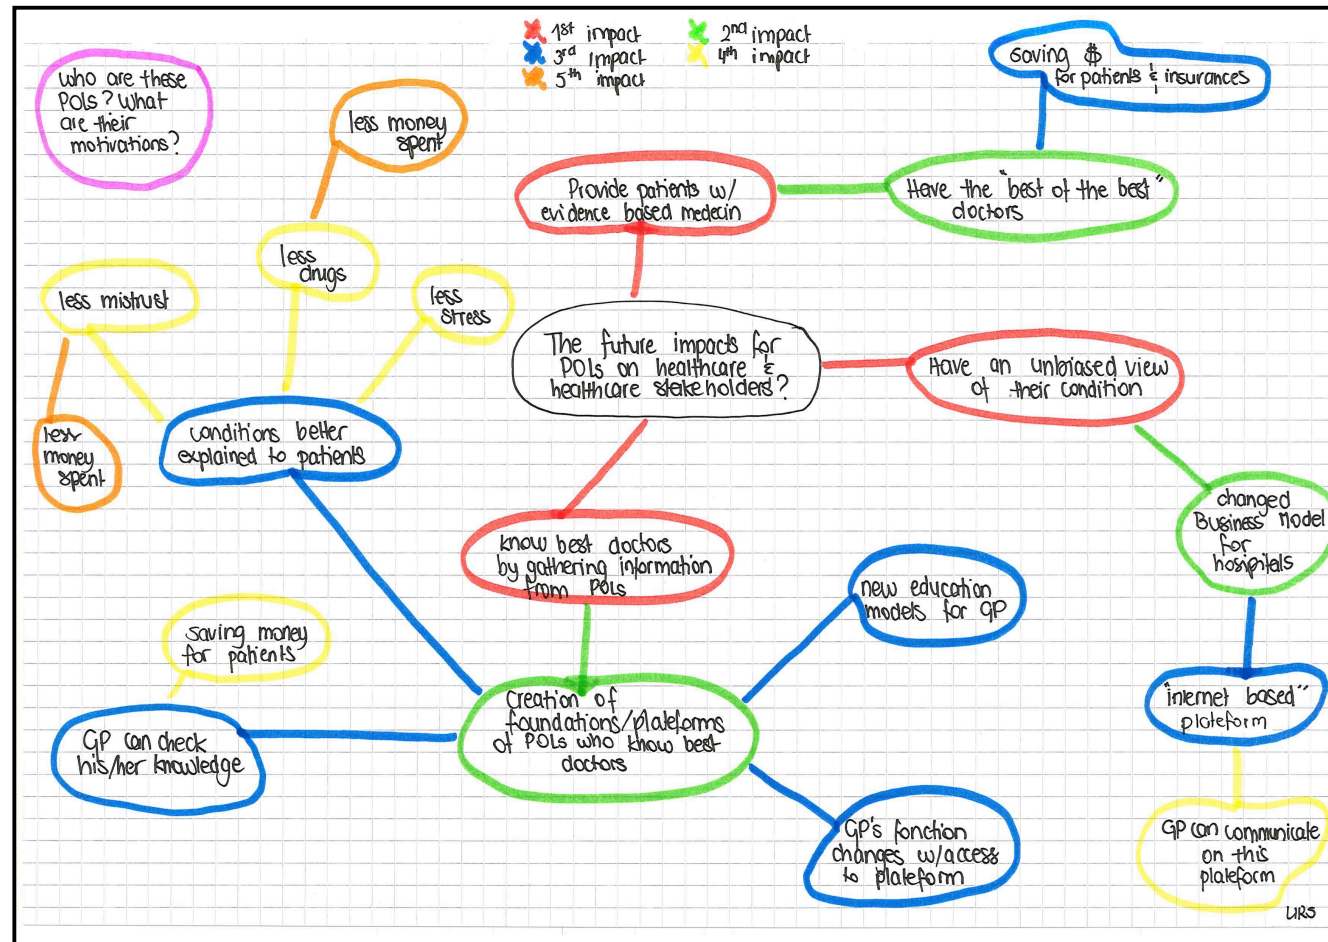 1st impact
2nd impact
3rd impact
4th impact
5th impact
who are these
POLs? What
are their
motivations?
less money
spent
saving $
for patients & insurances
Provide patients w/
evidence based medecin
Have the "best of the best"
doctors
less
drugs
less mistrust
less
stress
The future impacts for
POLs on healthcare &
healthcare stakeholders?
Have an unbiased view
of their condition
less
money
spent
conditions better
explained to patients
changed
Business Model
for
hospitals
know best doctors
by gathering information
from POLs
new education
models for GP
saving money
for patients
Creation of
foundations/plateforms
of POLs who know best
doctors
"internet based"
plateform
GP can check
his/her knowledge
GP's fonction
changes w/access
to plateform
GP can communicate
on this
plateform